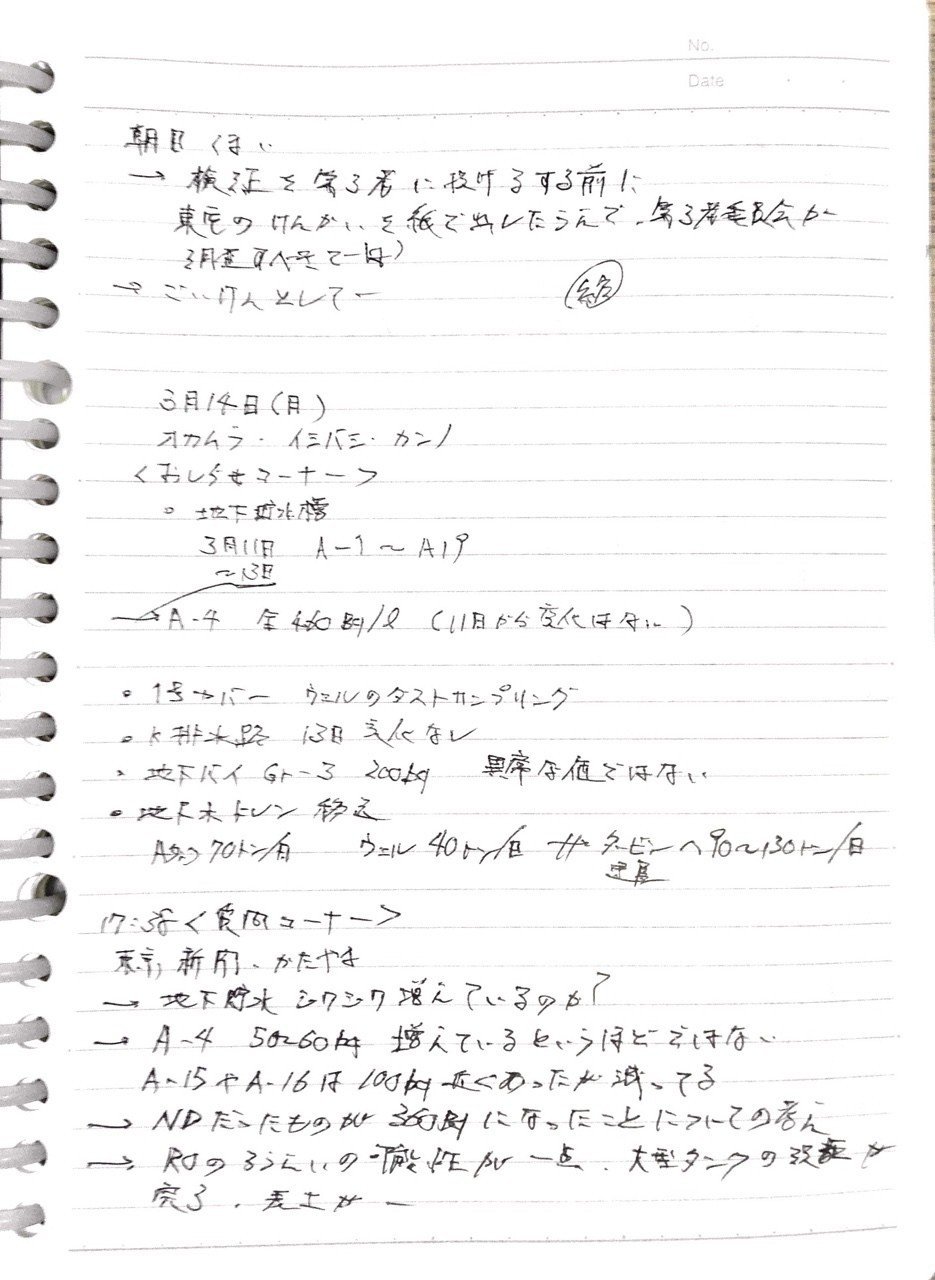 No.
Date
朝日 くほい
→ 検証を第3者に投げるする前に
東京のけんかいを紙で出したうえで、第3者委員会が
調査すべきでは
→ ごいけんとしてー
3月14日(月)
オカムラ・イシバシ・カンノ
<おしらせコーナー>
・地下貯水槽
3月11日 A-1〜A19
〜13日
→ A-4 全 460Bq/l (11日から変化はない)
・1号カバー ウェルのダストサンプリング
・K排水路 13日 変化なし
・地下バイ Gr-3 200Bq 異常な値ではない
・地下水ドレン 移送
70トン/日 ウェル 40トン/日 タービンへ90〜130トン/日
17:38 <質問コーナー>
東京新聞、かたやま
→ 地下貯水 ジワジワ増えているのか?
→ A-4 50〜60Bq 増えているというほどではない
A-15やA-16は100Bq近くあったが減ってる
→ NDだったものが360Bqになったことについての考え
→ ROのろうえいの可能性が一点、大型タンクの設置が
完了、